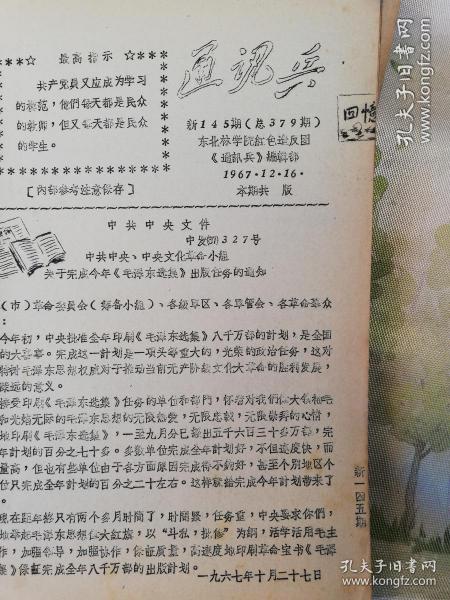 最高指示
共产党员又应成为学习
的模范，他們每天都是民众
的教师，但又每天都是民众
的学生。
［内部参考注意保存］
通訊兵
新145期（总379期）
东北林学院红色造反团
《通訊兵》編輯部
1967·12·16·
本期共 版
回憶
中共中央文件
中发(67)327号
中共中央、中央文化革命小組
关于完成今年《毛泽东选集》出版任务的通知
（市）革命委員会（筹备小組）、各級軍区、各軍管会、各革命羣众
：
今年初，中央批准全年印刷《毛泽东选集》八千万部的計划，是全国
的大喜事。完成这一計划是一項头等重大的，光荣的政治任务，这对
特树毛泽东思想权威对于推动当前无产阶級文化大革命的胜利发展，
深远的意义。
接受印刷《毛泽东选集》任务的单位和部門，怀着对我們伟大領袖毛
和光焰无际的毛泽东思想的无限热爱，无限忠誠，无限崇拜的心情，
地印刷《毛泽东选集》，一至九月分已輸出五千六百三十多万部，完
年計划的百分之七十多。多数单位完成計划好，不但进度快，而
量高，但也有些单位由于各方面原因完成得不够好，甚至个别地区个
位只完成全年計划的百分之二十左右。这样就給完成今年計划带来了
。
現在距年終只有两个多月时間了，时間緊，任务重，中央要求你們，
地举起毛泽东思想伟大紅旗，以“斗私，批修”为綱，活学活用毛主
作，加强領导，加强协作，保証质量，高速度地印刷革命宝书《毛泽
》保証完成全年八千万部的出版計划。
一九六七年十月二十七日
新一四五期
孔夫子旧书网